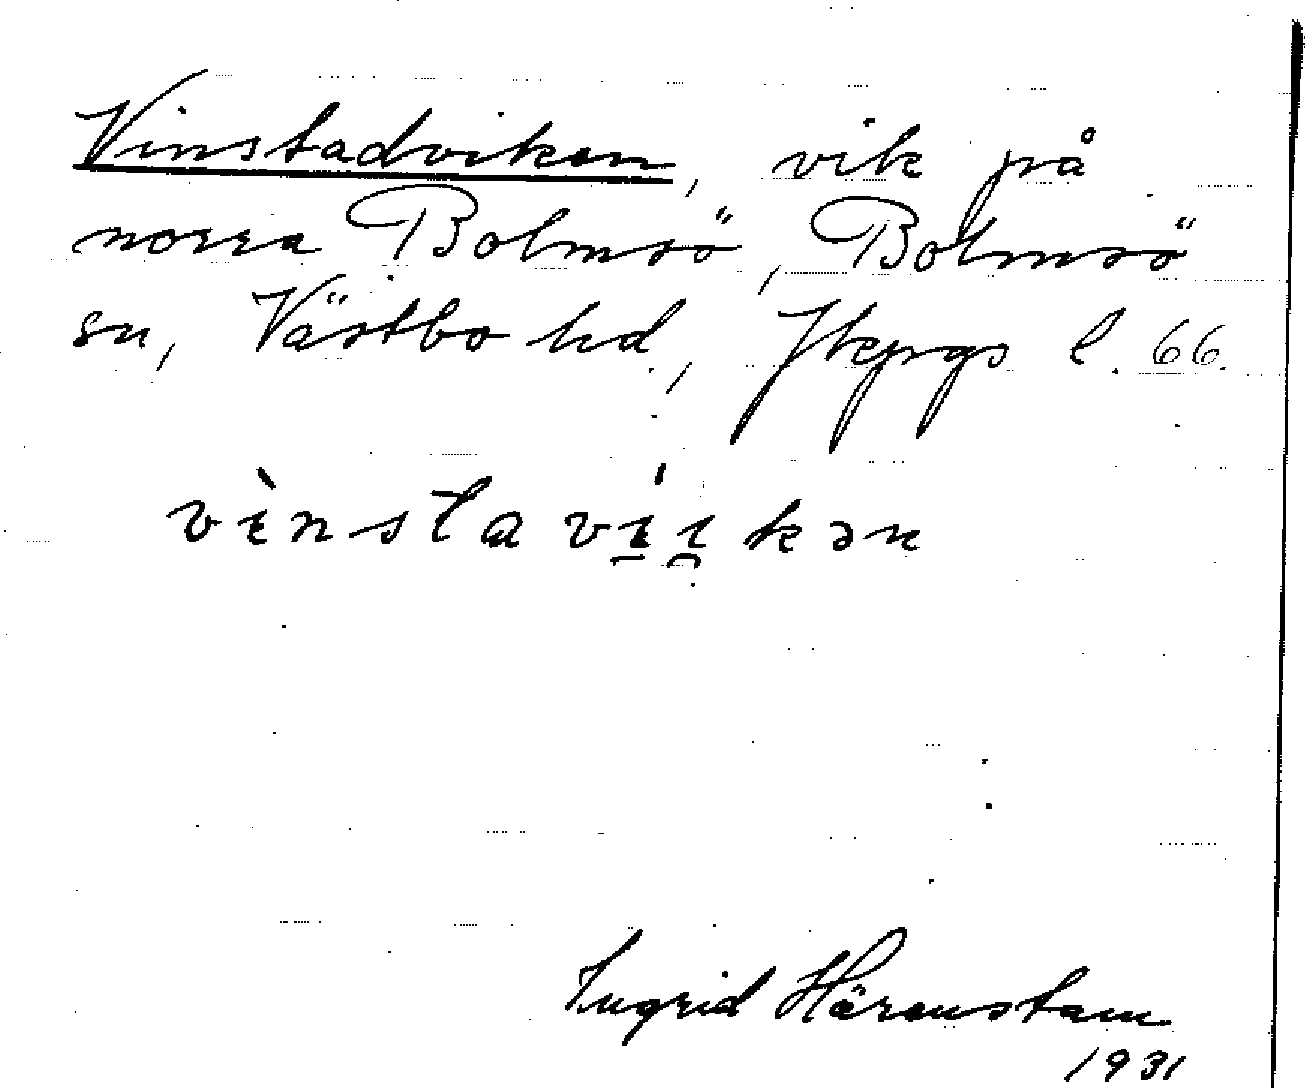 Vinstadviken, vik på
norra Bolmsö, Bolmsö
sn, Västbo hd, Jkpgs l. 66.
vìnstavíikən
Ingrid Härenstam
1931